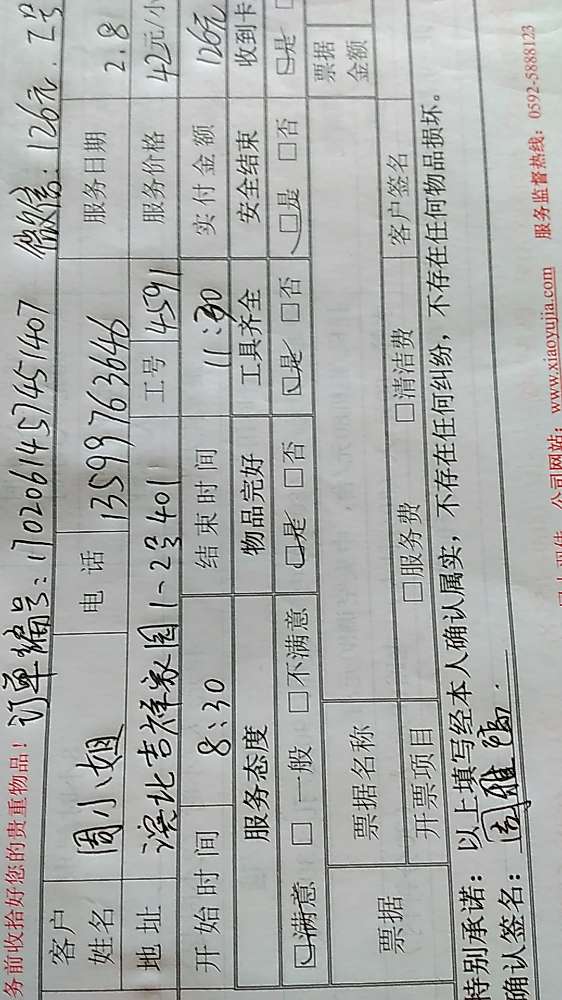 务前收拾好您的贵重物品！ 订单编号：1702061457451407 微信：126元．工号
客户姓名 周小姐 电话 13599763646 服务日期 2.8
地址 滨北吉祥家园1-2号401 工号 4591 服务价格 42元/小
开始时间 8：30 结束时间 11：30 实付金额 126元
服务态度 物品完好 工具齐全 安全结束 收到卡
☑满意 □一般 □不满意 ☑是 □否 ☑是 □否 ☑是 □否 ☑是
票据 票据名称 票据金额
开票项目 □服务费 □清洁费 客户签名
特别承诺：以上填写经本人确认属实，不存在任何纠纷，不存在任何物品损坏。
确认签名：周雅
公司网站：www.xiaoyujia.com 服务监督热线：0592-5888123